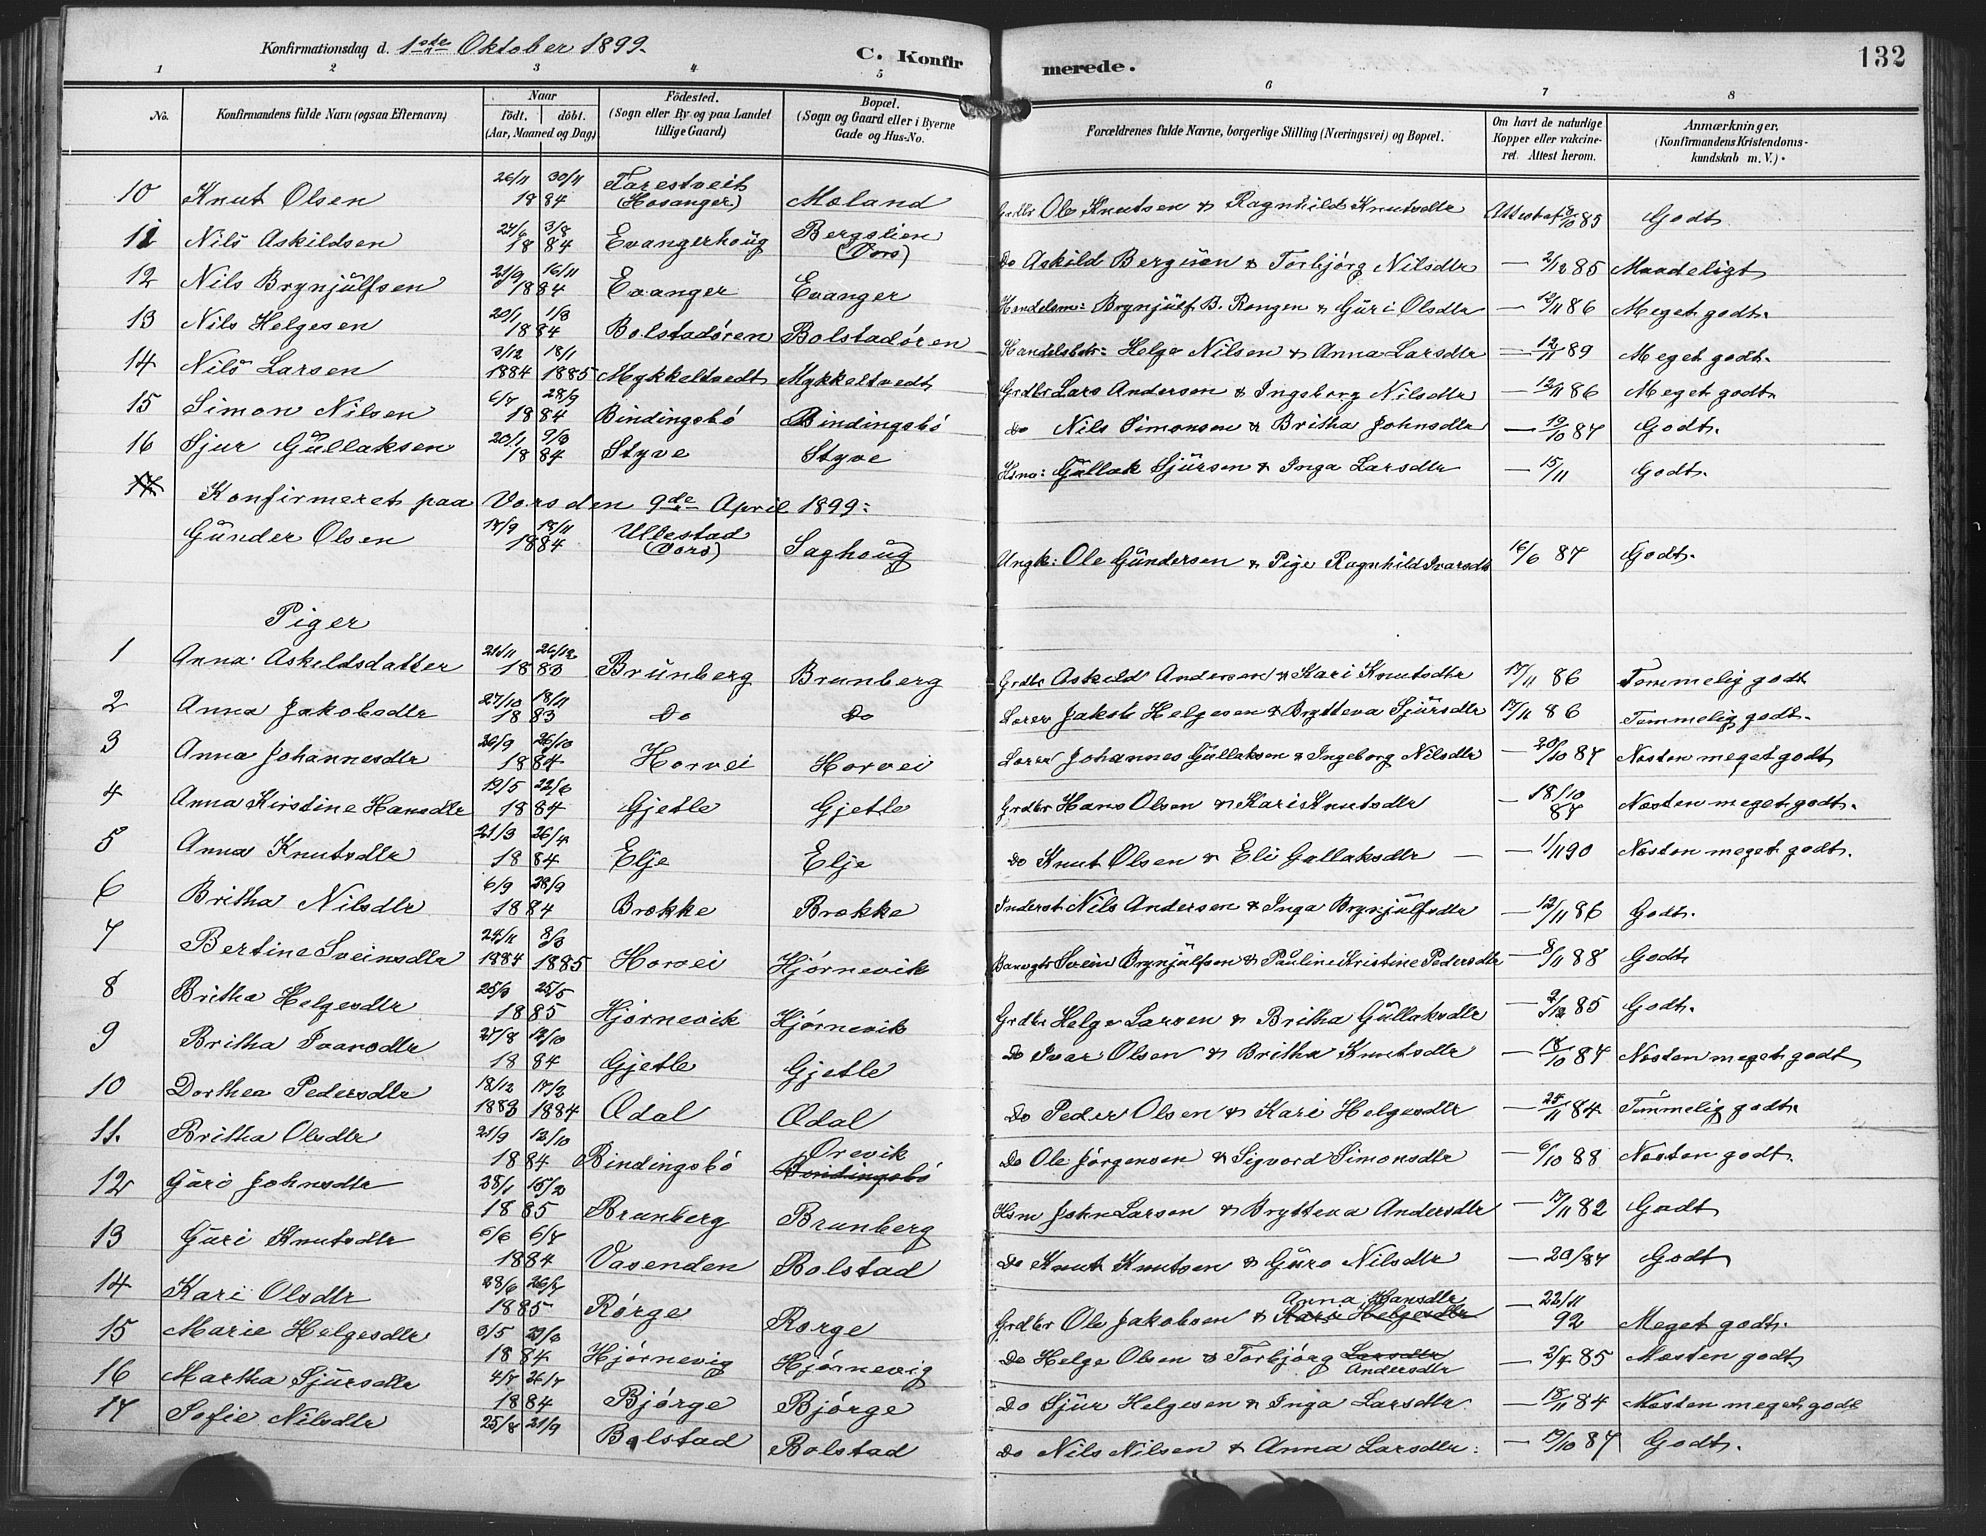 Konfirmationsdag d. 1ste Oktober 1899.
C. Konfirmerede.
132
1 2 3 4 5 6 7 8
No. | Konfirmandens fulde Navn (ogsaa Efternavn) | Naar født. døbt. (Aar, Maaned og Dag) | Fødested. (Sogn eller By og paa Landet tillige Gaard) | Bopæl. (Sogn og Gaard eller i Byerne Gade og Hus-No. | Forældrenes fulde Navne, borgerlige Stilling (Næringsvei) og Bopæl. | Om havt de naturlige Kopper eller vakcineret. Attest herom. | Anmærkninger. (Konfirmandens Kristendomskundskab m. V.).
10 Knut Olsen 26/11 30/11 1884 Farestveit (Hosanger) Moland Grdbr Ole Knutsen & Ragnhild Knutsdtr Attest af 8/10 85 Godt
11 Nils Askildsen 27/6 3/8 1884 Evangerhoug Bergslien (Vors) Do Askild Bergsien & Torbjørg Nilsdtr — 2/12 85 Maadeligt
12 Nils Brynjulfsen 21/9 16/11 1884 Evanger Evanger Handelsm: Brynjulf B. Rongen & Guri Olsdtr — 12/11 86 Meget godt.
13 Nils Helgesen 20/1 1/3 1884 Bolstadøren Bolstadøren Handelsbetr: Helge Nilsen & Anna Larsdtr — 12/11 89 Meget godt.
14 Nils Larsen 3/12 18/1 1884 1885 Mykkeltvedt Mykkeltvedt Grdbr Lars Andersen & Ingeborg Nilsdtr — 12/11 86 Meget godt.
15 Simon Nilsen 6/7 28/9 1884 Bindingsbø Bindingsbø Do Nils Simonsen & Britha Johnsdtr — 19/10 87 Godt.
16 Sjur Gullaksen 20/1 9/3 1884 Styve Styve Gullak Sjursen & Inga Larsdtr — 15/11 Godt.
17 Konfirmeret paa Vors den 9de April 1899:
Gunder Olsen 17/9 13/11 1884 Ullestad (Vors) Saghoug Ungk: Ole Gundersen & Pige Ragnhild Ivarsdtr 16/6 87 Godt.
Piger
1 Anna Askildsdatter 21/11 26/12 1883 Brunberg Brunberg Grdbr Askild Andersen & Kari Knutsdtr 17/11 86 Temmelig godt
2 Anna Jakobsdtr 27/10 18/11 1883 Do Do Lærer Jakob Helgesen & Brytteva Sjursdtr 17/11 86 Temmelig godt.
3 Anna Johannesdtr 26/9 26/10 1884 Horvei Horvei Lærer Johannes Gullaksen & Ingeborg Nilsdtr — 20/10 87 Næsten meget godt
4 Anna Kirstine Hansdtr 19/5 22/6 1884 Gjetle Gjetle Grdbr Hans Olsen & Kari Knutsdtr — 18/10 87 Næsten meget godt.
5 Anna Knutsdtr 21/3 26/4 1884 Elje Elje Do Knut Olsen & Eli Gullaksdtr — 1/11 90 Næsten meget godt.
6 Britha Nilsdtr 6/9 28/9 1884 Brække Brække Inderst Nils Andersen & Inga Brynjulfsdtr — 12/11 86 Godt.
7 Bertine Sveinsdtr 24/11 8/3 1884 1885 Horvei Hjørnevik Banevgtr Svein Brynjulfsen & Pauline Kristine Pedersdtr — 8/11 88 Godt
8 Britha Helgesdtr 25/3 25/5 1885 Hjørnevik Hjørnevik Grdbr Helge Larsen & Britha Gullaksdtr — 2/12 85 Godt.
9 Britha Ivarsdtr 27/8 12/10 1884 Gjetle Gjetle Do Ivar Olsen & Britha Knutsdtr — 18/10 87 Næsten meget godt
10 Dorthea Pedersdtr 18/12 17/2 1883 1884 Ædal Ædal Do Peder Olsen & Kari Helgesdtr — 25/11 84 Temmelig godt.
11. Britha Olsdtr 21/9 12/10 1884 Bindingsbø Ørevik Bindingsbø Do Ole Jørgensen & Sigvord Simonsdtr — 6/10 88 Næsten godt.
12 Guro Johnsdtr 28/1 15/2 1885 Brunberg Brunberg Hsm John Larsen & Brytteva Andersdtr — 17/11 82 Godt
13 Guri Knutsdtr 6/6 6/7 1884 Vasenden Bolstad Do Knut Knutsen & Guro Nilsdtr — 20/87 Godt
14 Kari Olsdtr 28/6 26/7 1885 Rørge Rørge Grdbr Ole Jakobsen & Kari Helgesdtr Anna Hansdtr — 22/11 92 Meget godt.
15 Marie Helgesdtr 3/5 23/3 1884 Hjørnevig Hjørnevig Do Helge Olsen & Torbjørg Larsdtr Andersdtr — 2/7 85 Næsten godt
16 Martha Sjursdtr 4/7 26/7 1884 Bjørge Bjørge Do Sjur Helgesen & Inga Larsdtr — 18/11 84 Næsten meget godt
17 Sofie Nilsdtr 25/8 21/9 Bolstad Bolstad Do Nils Nilsen & Anna Larsdtr: — 19/10 87 Godt.